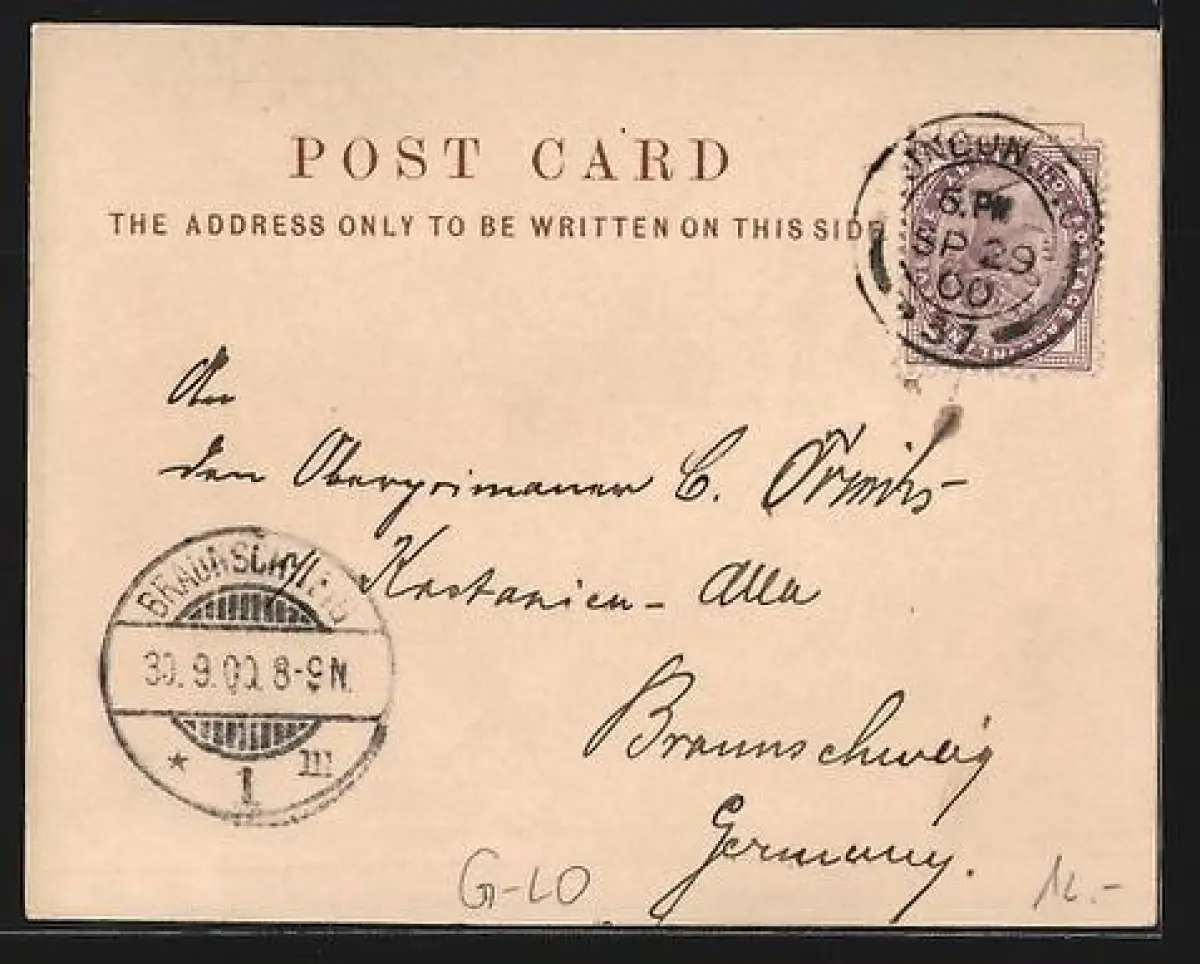 POST CARD
THE ADDRESS ONLY TO BE WRITTEN ON THIS SIDE
6. PM
SP 29
00
37
An
den Oberprimaner C.
Kastanien - Allee
Braunschweig
Germany.
BRAUNSCHWEIG
30.9.00. 8-9 N.
* 1 m
G-LO
12.-